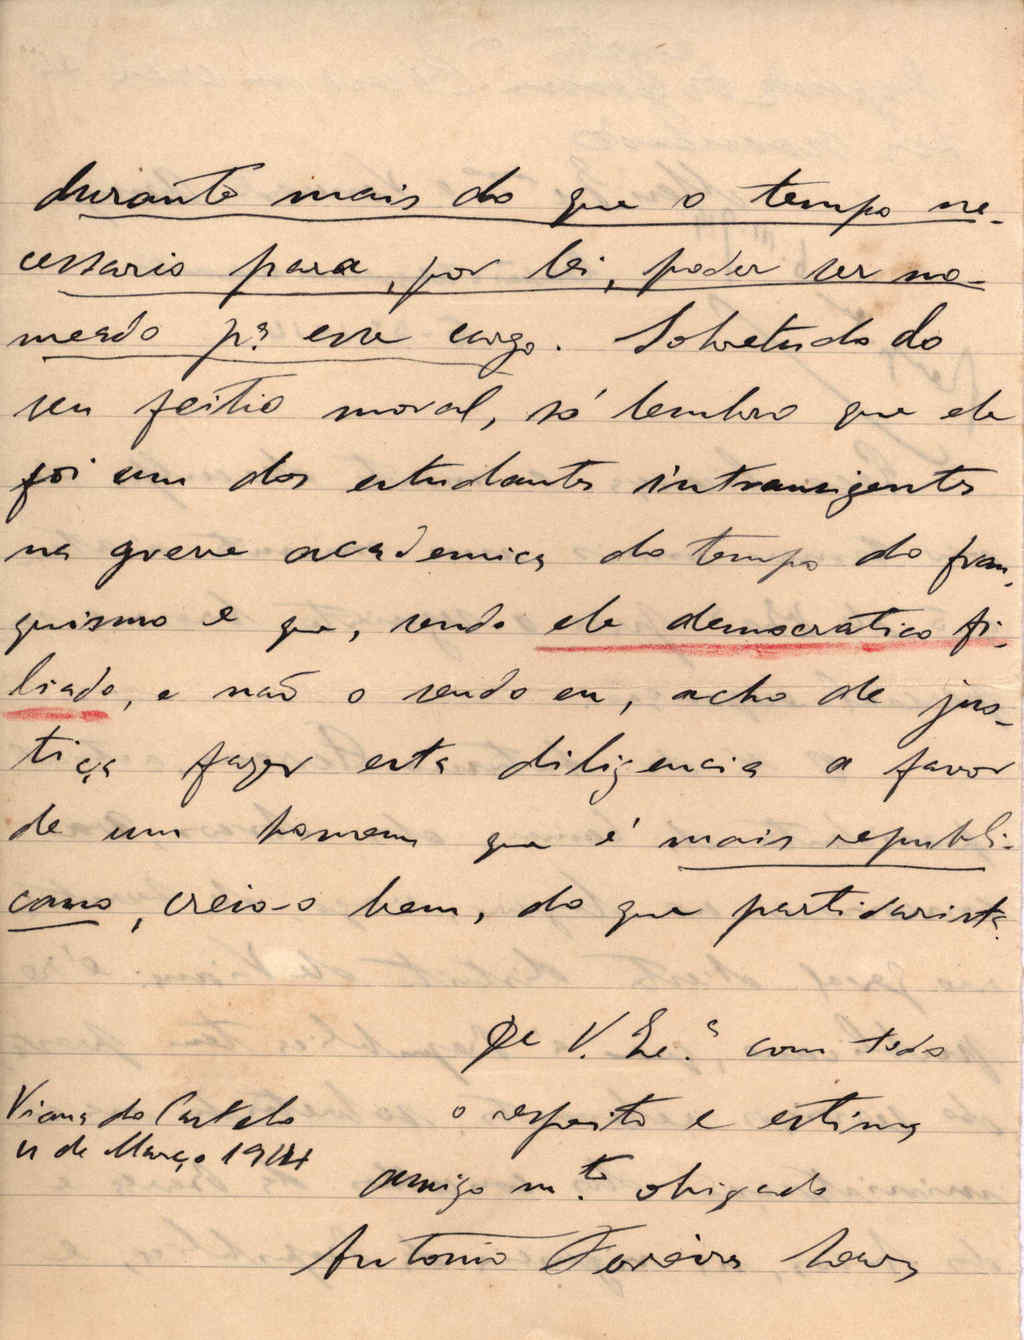 durante mais do que o tempo ne-
cessario para, por lei, poder ser no-
meado pª esse cargo. Sobretudo do
seu feitio moral, só lembro que ele
foi um dos estudantes intransigentes
na greve academica do tempo do fran-
quismo e que, sendo ele democratico fi-
liado, e não o sendo eu, acho de jus-
tiça fazer esta diligencia a favor
de um homem que é mais republi-
cano, creio-o bem, do que partidarista.
De V. Exª com todo
o respeito e estima
Viana do Castelo
11 de Março 1914
amigo m.to obrigado
Antonio Ferreira Soares